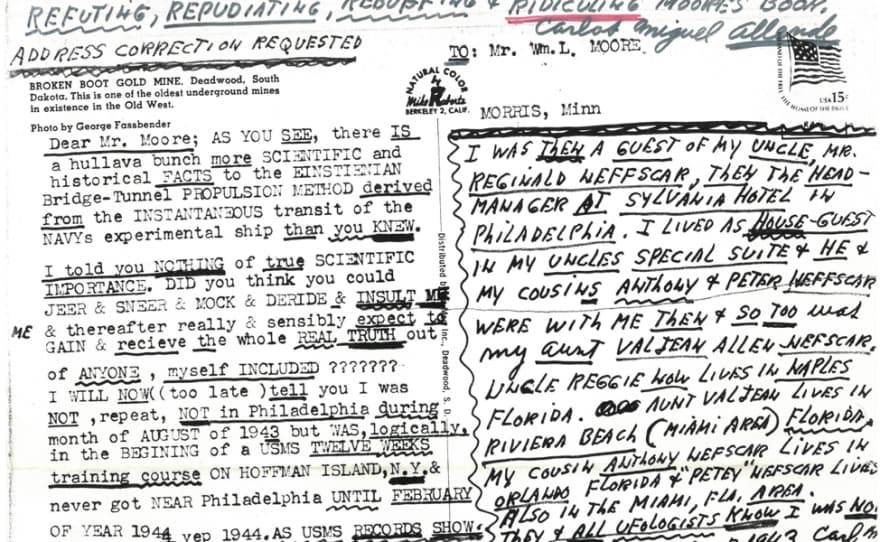 REFUTING, REPUDIATING, REBUFFING & RIDICULING MOORE'S BOOK.
Carlos Miguel Allende
ADDRESS CORRECTION REQUESTED
TO: Mr. Wm. L. MOORE
BROKEN BOOT GOLD MINE. Deadwood, South
Dakota. This is one of the oldest underground mines
in existence in the Old West.
Photo by George Fassbender
NATURAL COLOR
Mike Roberts
BERKELEY 2, CALIF.
USA 15c
MORRIS, Minn
Dear Mr. Moore; AS YOU SEE, there IS
a hullava bunch more SCIENTIFIC and
historical FACTS to the EINSTIENIAN
Bridge-Tunnel PROPULSION METHOD derived
from the INSTANTANEOUS transit of the
NAVYs experimental ship than you KNEW.
I told you NOTHING of true SCIENTIFIC
IMPORTANCE. DID you think you could
JEER & SNEER & MOCK & DERIDE & INSULT ME
ME & thereafter really & sensibly expect to
GAIN & recieve the whole REAL TRUTH out
of ANYONE , myself INCLUDED ???????
I WILL NOW((too late )tell you I was
NOT ,repeat, NOT in Philadelphia during
month of AUGUST of 1943 but WAS,logically,
in the BEGINING of a USMS TWELVE WEEKS
training course ON HOFFMAN ISLAND,N.Y.&
never got NEAR Philadelphia UNTIL FEBRUARY
OF YEAR 1944 yep 1944.AS USMS RECORDS SHOW.
Distributed by
Inc., Deadwood, S. D.
I WAS THEN A GUEST OF MY UNCLE, MR.
REGINALD HEFFSCAR, THEN THE HEAD-
MANAGER AT SYLVANIA HOTEL IN
PHILADELPHIA. I LIVED AS HOUSE-GUEST
IN MY UNCLES SPECIAL SUITE & HE &
MY COUSINS ANTHONY & PETER HEFFSCAR
WERE WITH ME THEN & SO TOO was
my AUNT VALJEAN ALLEN HEFSCAR.
UNCLE REGGIE NOW LIVES IN NAPLES
FLORIDA. AUNT VALJEAN LIVES IN
RIVIERA BEACH (MIAMI AREA) FLORIDA
MY COUSIN ANTHONY HEFSCAR LIVES IN
ORLANDO FLORIDA & "PETEY" HEFSCAR LIVES
ALSO IN THE MIAMI, FLA. AREA.
THEY & ALL UFOLOGISTS KNOW I WAS NO
1943 Carl M